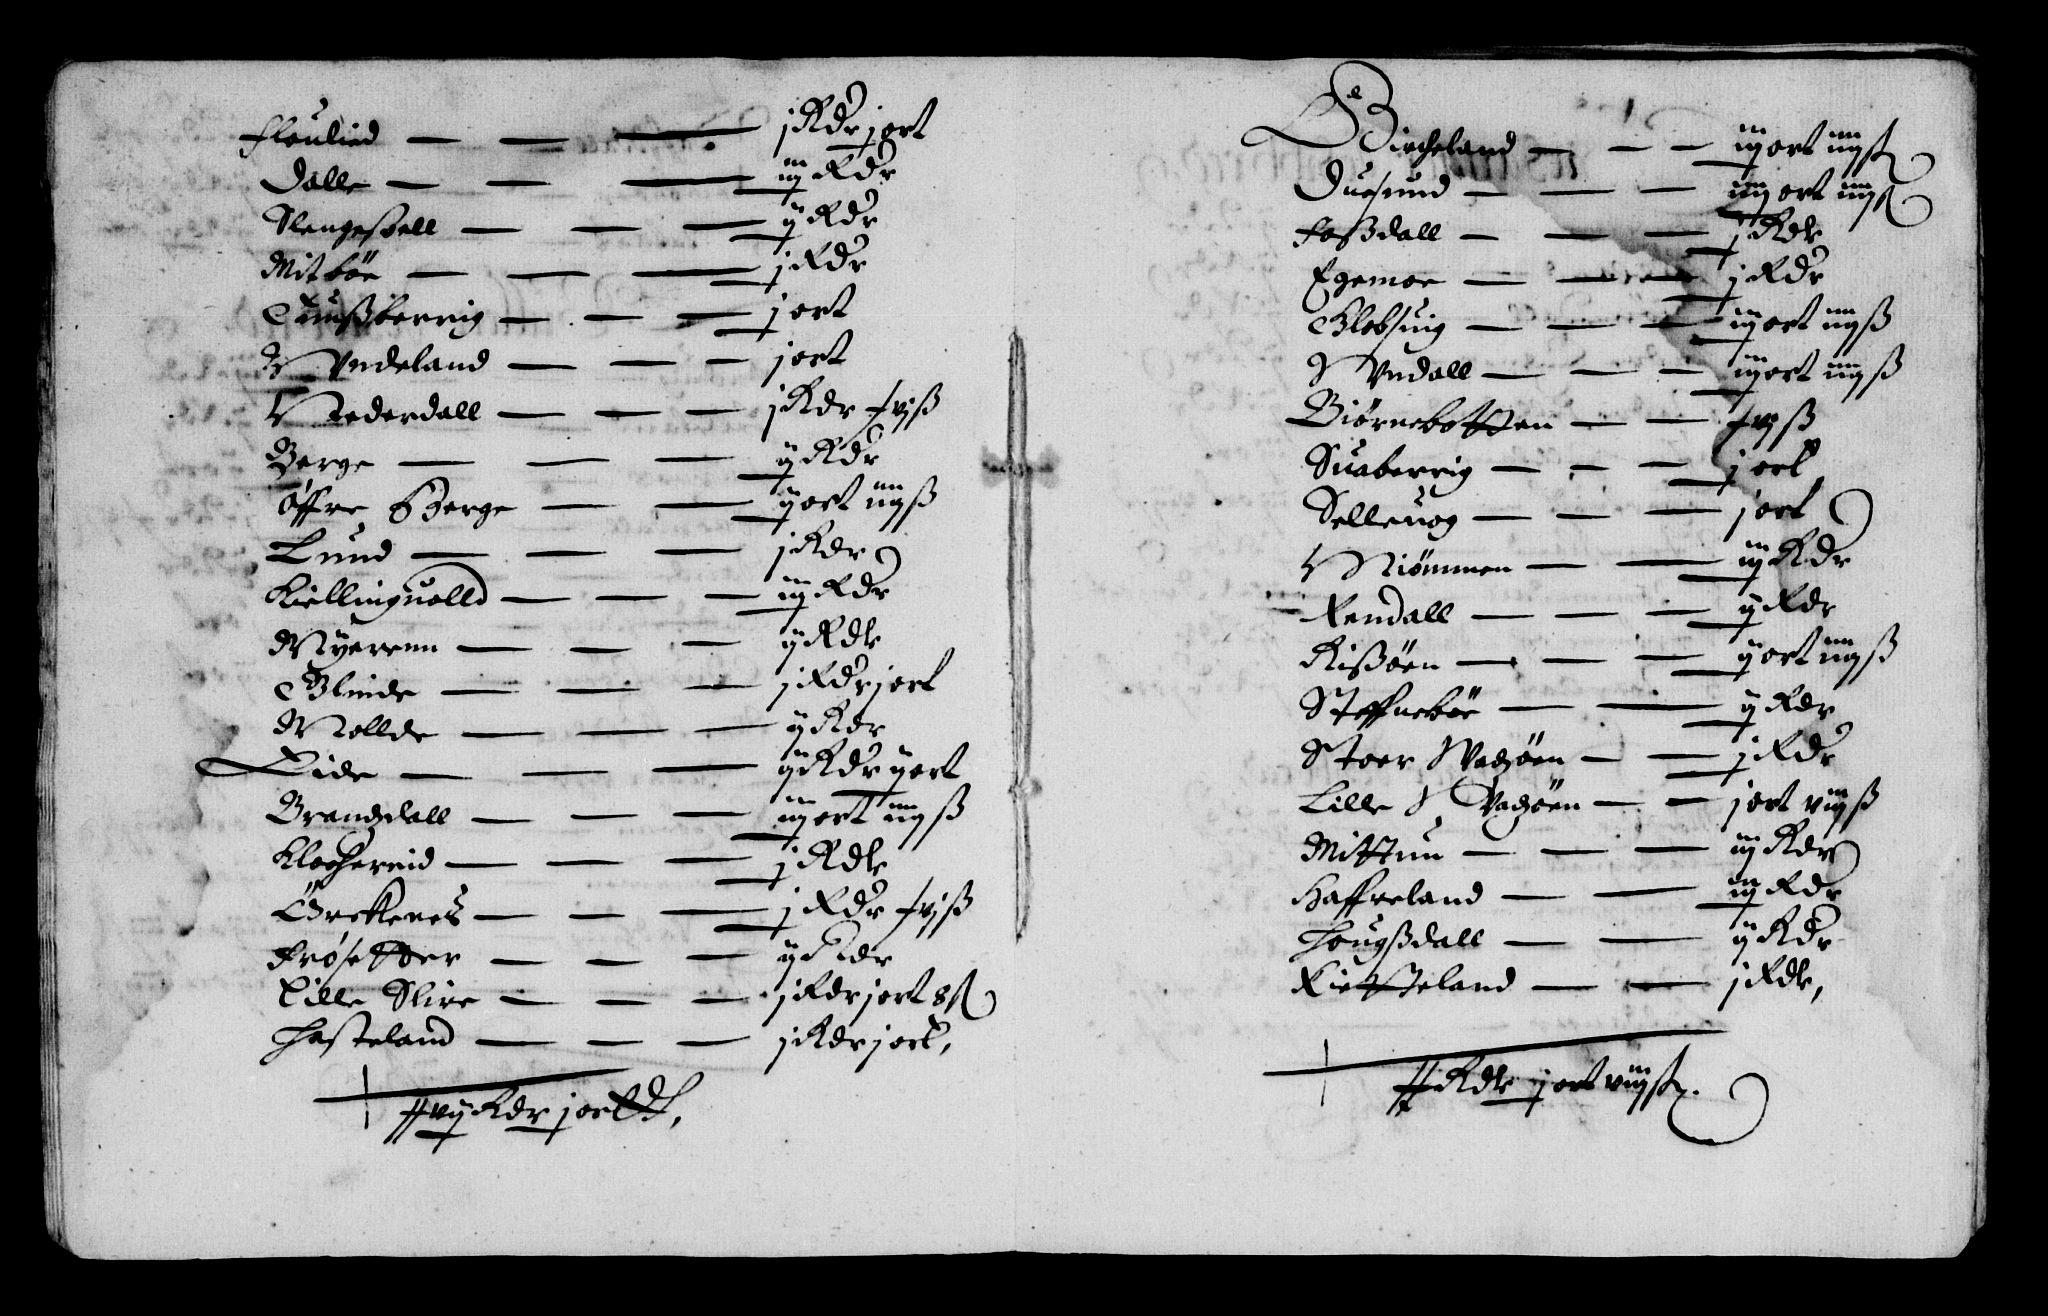 Floulied — — — j Rdr j ort
Dalle — — — iij Rdr
Slengesoell — — — ij Rdr
Mitbøe — — — j Rdr
Tuußberrig — — — j ort
Vndeland — — — j ort
Nederdall — — — j Rdr xvj ß
Berge — — — ij Rdr
Øffre Berge — — ij ort iiij ß
Lund — — — j Rdr
Kiellinguolld — — — iij Rdr
Myerenn — — — ij Rdr
Blinde — — — j Rdr j ort
Mollde — — — ij Rdr
Eide — — — ij Rdr ij ort
Brandzdall — — — iij ort iiij ß
Klochereid — — — j Rdr
Greffenes — — — j Rdr xvj ß
Frøsetter — — — ij Rdr
Lille Slire — — — j Rdr j ort 8 ß
Hasteland — — — j Rdr j ort,
xxxvij Rdr j ort
Bircheland — — — iij ort iiij ß
Duesund — — — iij ort iiij ß
Foßdall — — — j Rdr
Egemoe — — — j Rdr
Blobsuig — — — iij ort iiij ß
Vndall — — — iij ort iiij ß
Biørnebotten — — xvj ß
Suaberrig — — — j ort
Selleuog — — — j ort
Niømmen — — iij Rdr
Rendall — — — ij Rdr
Rißøen — — — ij ort iiij ß
Steffnebøe — — ij Rdr
Stoer Vadzøen — — j Rdr
Lille Vadzøen — — j ort viij ß
Mittun — — — iij Rdr
Haffreland — — iij Rdr
Hougßdall — — ij Rdr
Kietteland — — j Rdr,
Rdr j ort viij ß.